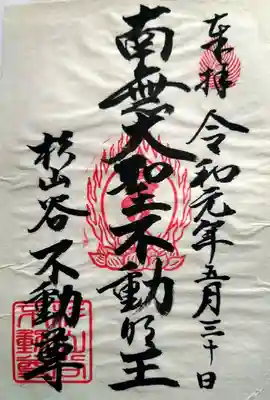 奉拝
令和元年五月三十日
南無大聖不動明王
杉山谷不動尊